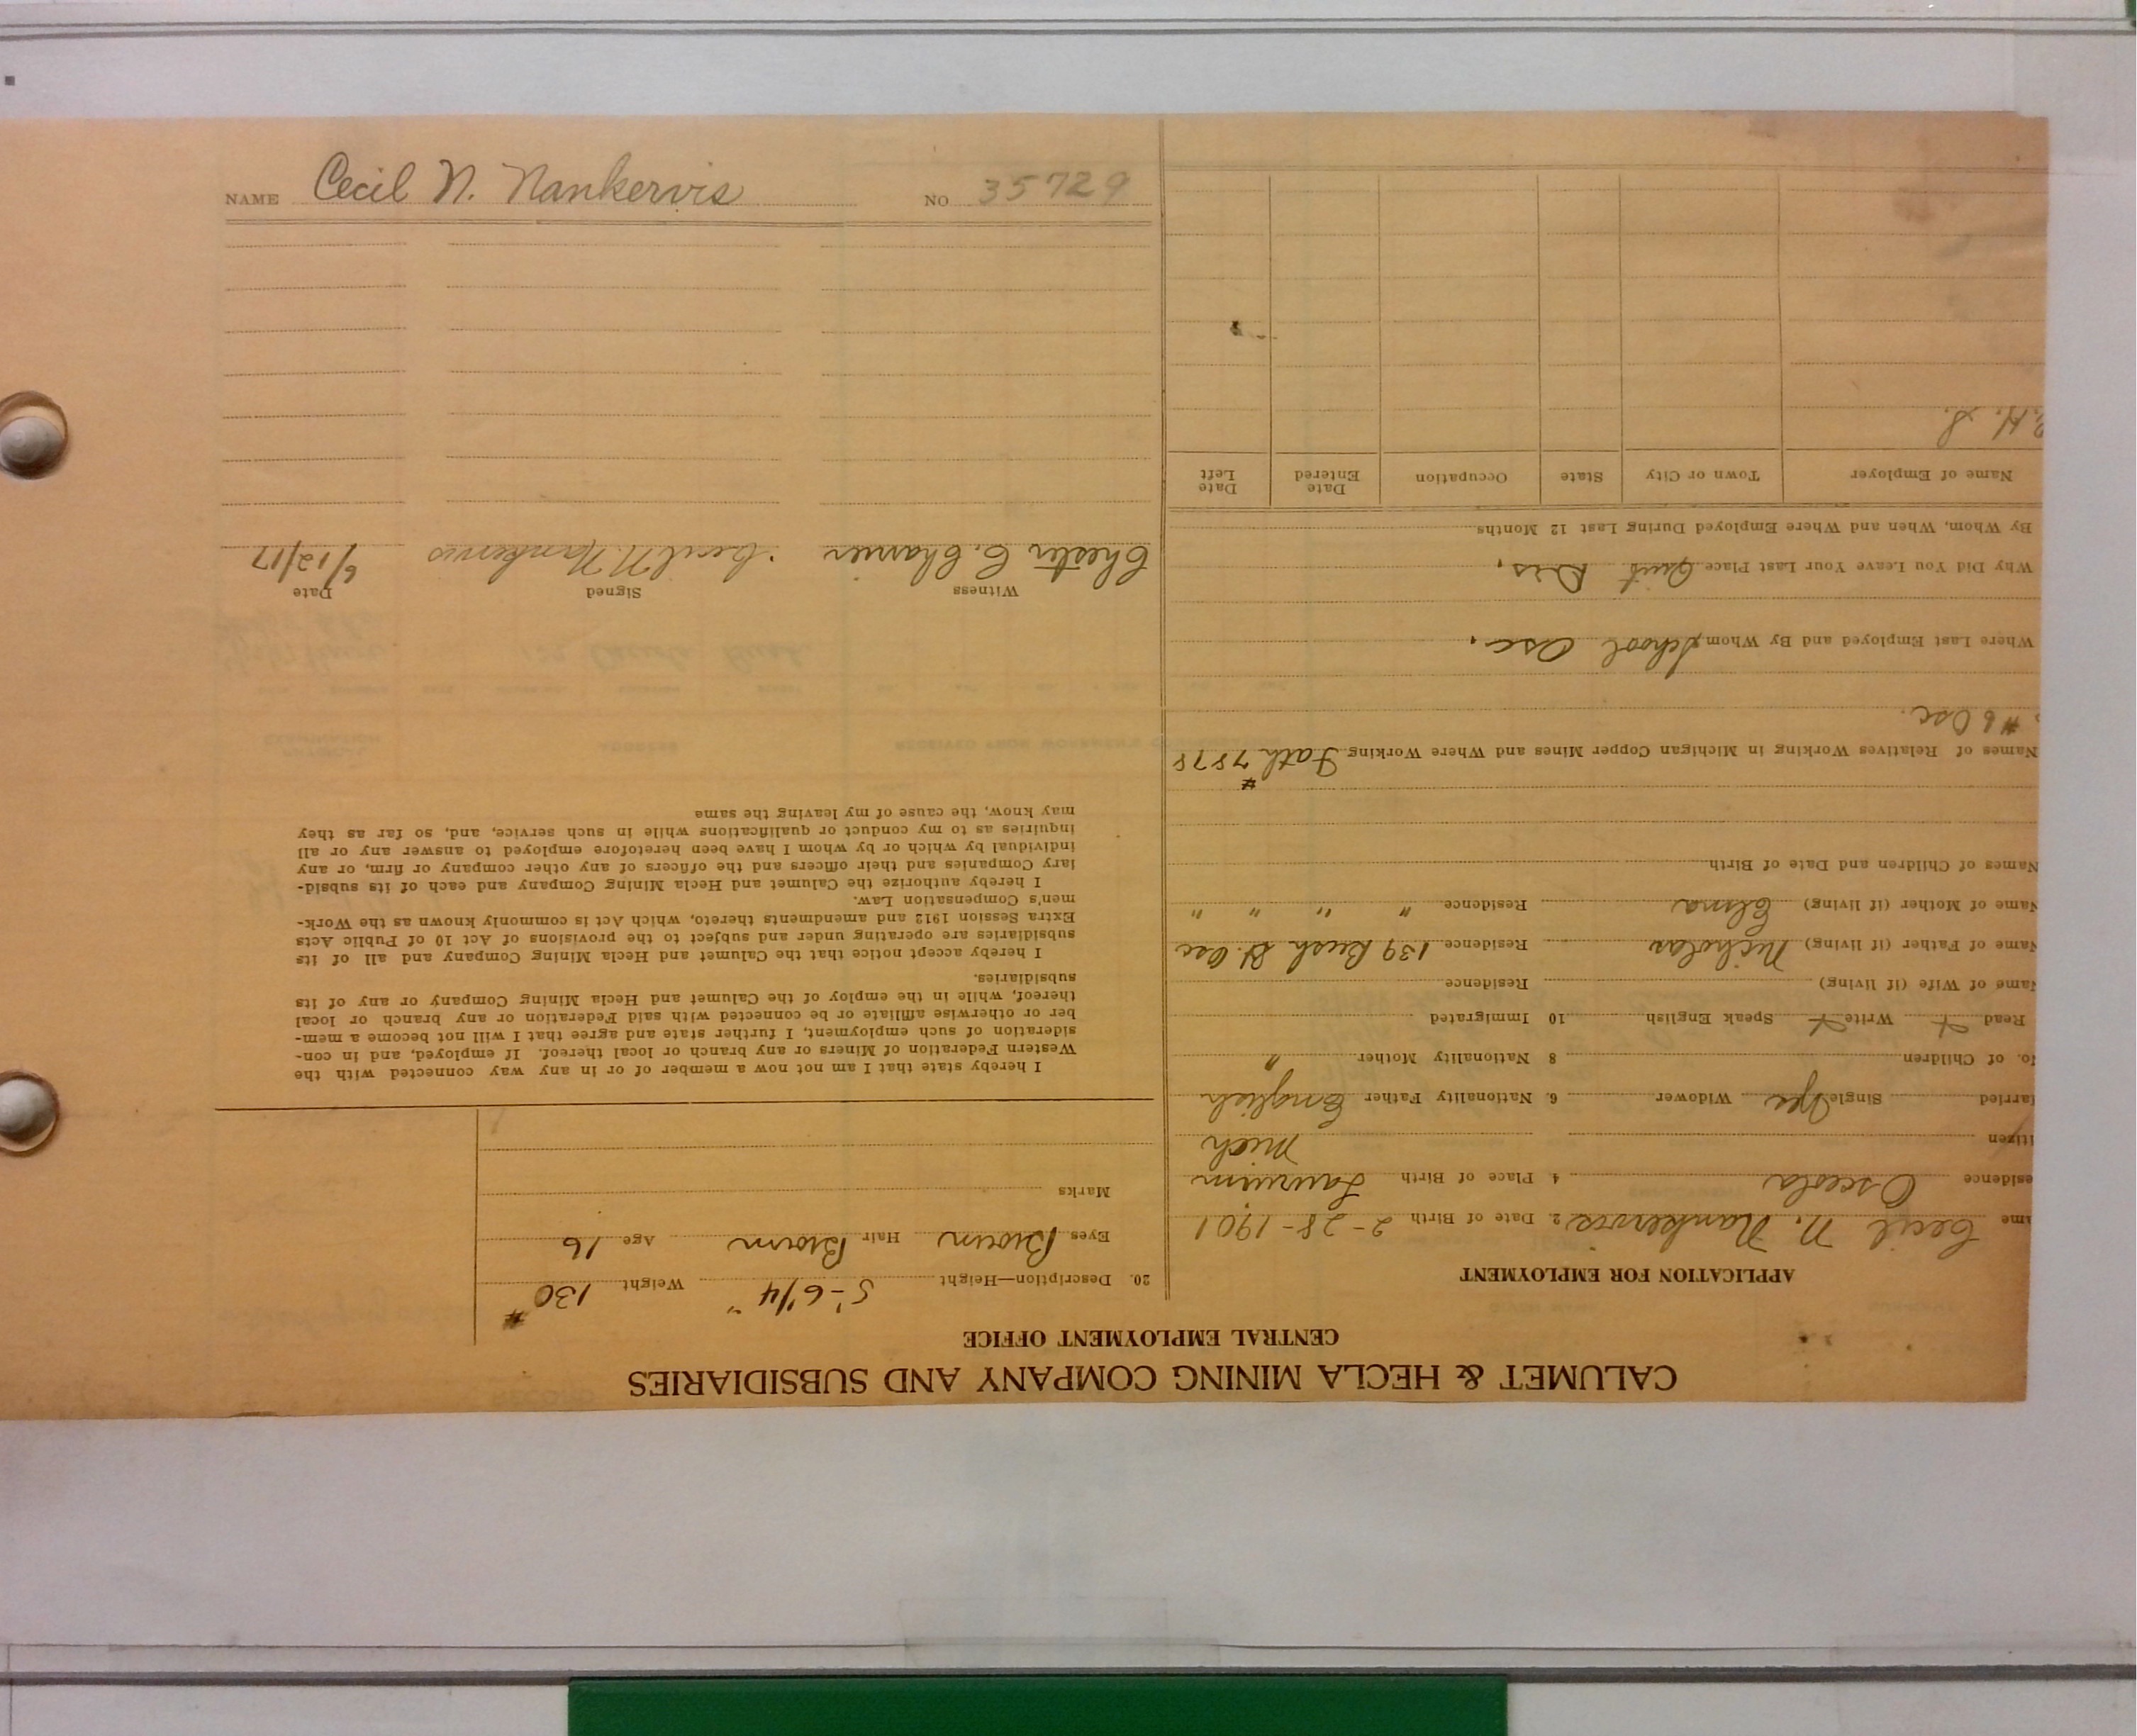 NAME Cecil N. Nankervis NO 35729
CALUMET & HECLA MINING COMPANY AND SUBSIDIARIES
CENTRAL EMPLOYMENT OFFICE
APPLICATION FOR EMPLOYMENT
ame Cecil N. Nankervis 2. Date of Birth 2-28-1901
esidence Osceola 4. Place of Birth Laurium
Mich
itizen
arried Single Yes Widower 6. Nationality Father English
o. of Children 8 Nationality Mother "
Read Write Speak English 10 Immigrated
Name of Wife (if living) Residence
Name of Father (if living) Nicholas Residence 139 Bush St. Osc
Name of Mother (if living) Elma Residence " " " "
Names of Children and Date of Birth
Names of Relatives Working in Michigan Copper Mines and Where Working Fath #7878
#6 Osc.
Where Last Employed and By Whom School Osc.
Why Did You Leave Your Last Place Quit Dis.
By Whom, When and Where Employed During Last 12 Months
Name of Employer Town or City State Occupation Date Entered Date Left
H. S.
20. Description—Height 5'-6 1/4" Weight 130 #
Eyes Brown Hair Brown Age 16
Marks
I hereby state that I am not now a member of or in any way connected with the
Western Federation of Miners or any branch or local thereof. If employed, and in con-
sideration of such employment, I further state and agree that I will not become a mem-
ber or otherwise affiliate or be connected with said Federation or any branch or local
thereof, while in the employ of the Calumet and Hecla Mining Company or any of its
subsidiaries.
I hereby accept notice that the Calumet and Hecla Mining Company and all of its
subsidiaries are operating under and subject to the provisions of Act 10 of Public Acts
Extra Session 1912 and amendments thereto, which Act is commonly known as the Work-
men's Compensation Law.
I hereby authorize the Calumet and Hecla Mining Company and each of its subsid-
iary Companies and their officers and the officers of any other company or firm, or any
individual by which or by whom I have been heretofore employed to answer any or all
inquiries as to my conduct or qualifications while in such service, and, so far as they
may know, the cause of my leaving the same
Witness Signed Date
Chester C. Cl Cecil N. Nankervis 6/12/17